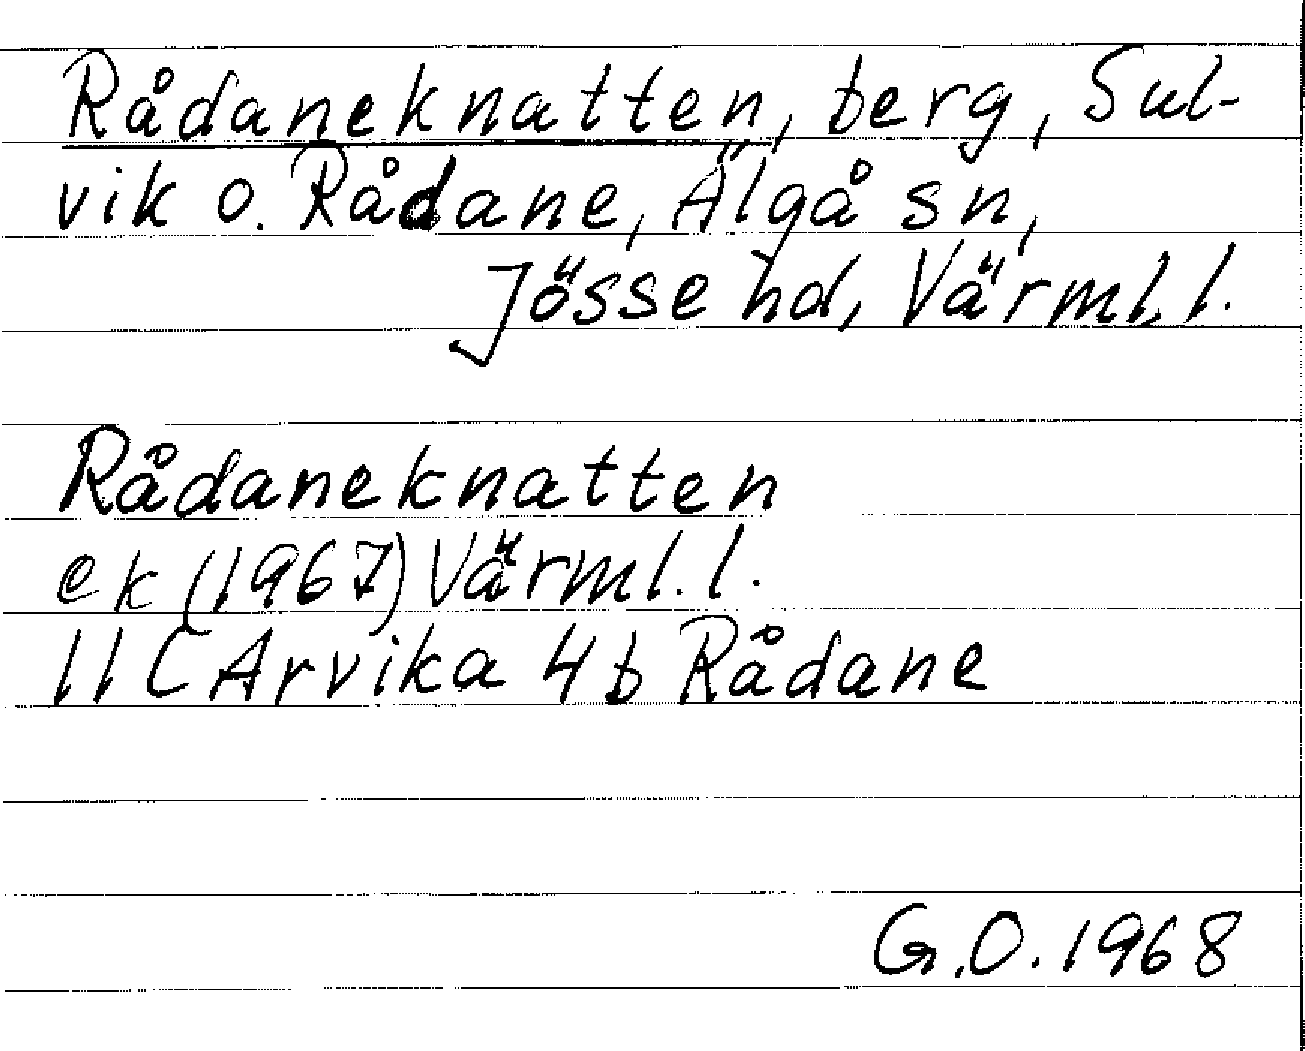 Rådaneknatten, berg, Sul-
vik o. Rådane, Älgå sn,
Jösse hd, Värml. l.
Rådaneknatten
ek (1967) Värml. l.
11 C Arvika 4b Rådane
G.O. 1968